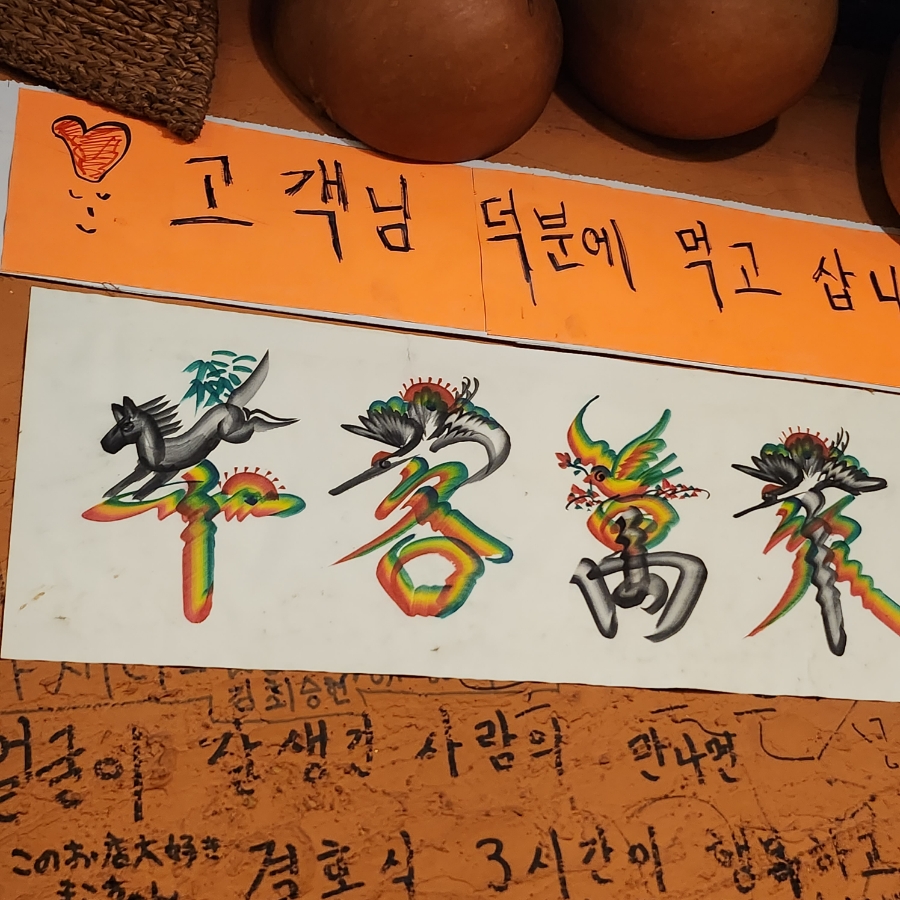 고객님 덕분에 먹고 삽니
千客萬来
최승현
얼굴이 잘생긴 사람의 만나면
このお店大好き
결혼식 3시간이 행복하고